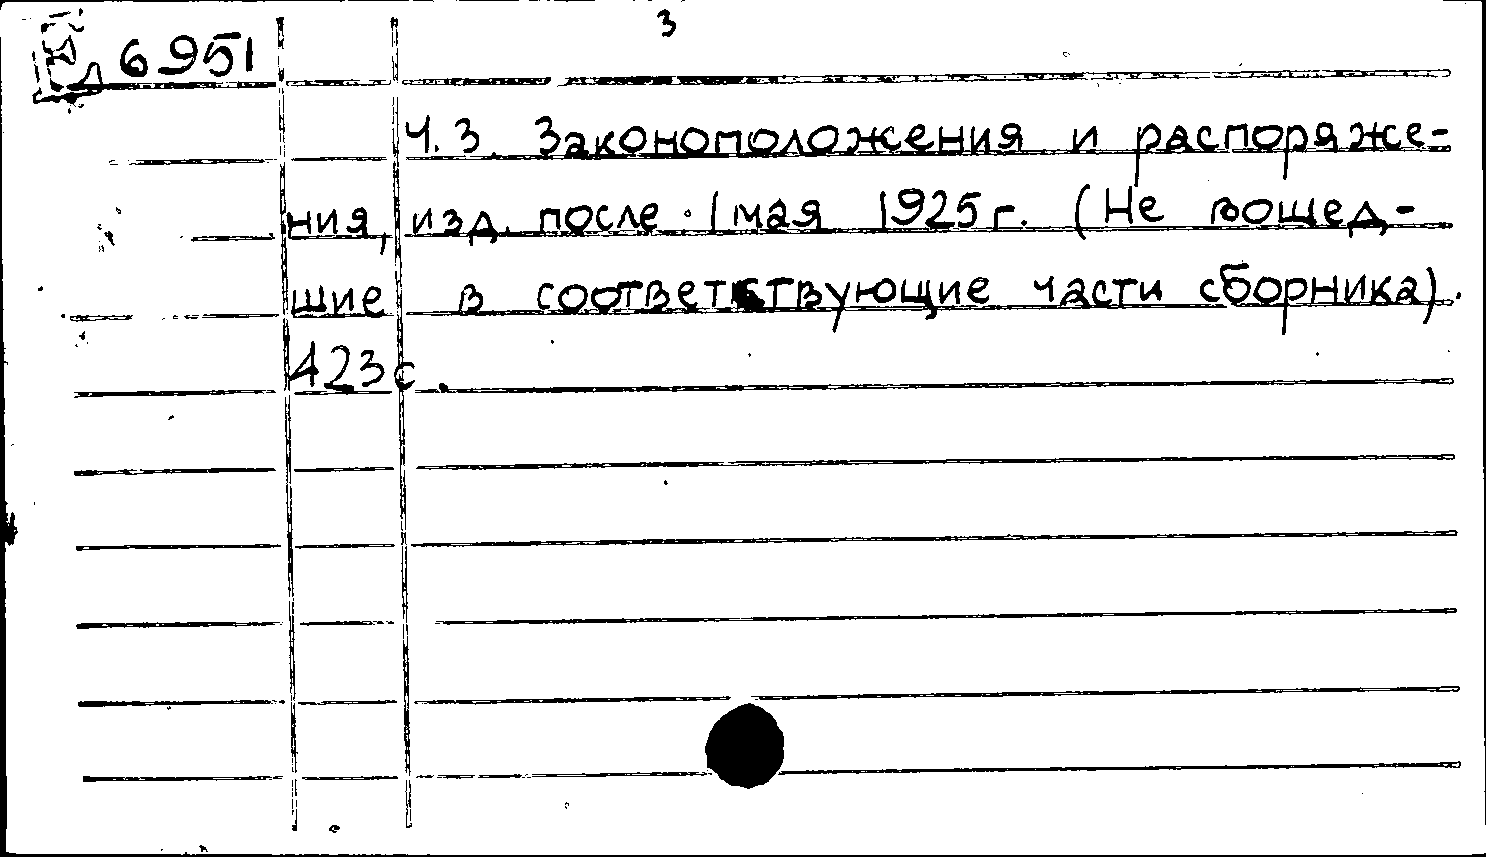 3
6951
Ч.3. Законоположения и распоряже-
ния, изд. после 1 мая 1925 г. (Не вошед-
шие в соответствующие части сборника).
423 с.